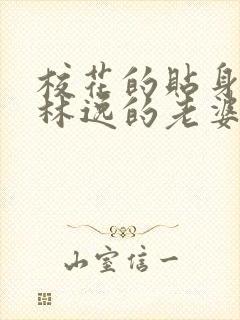 校花的贴身
林逸的老婆
山室信一